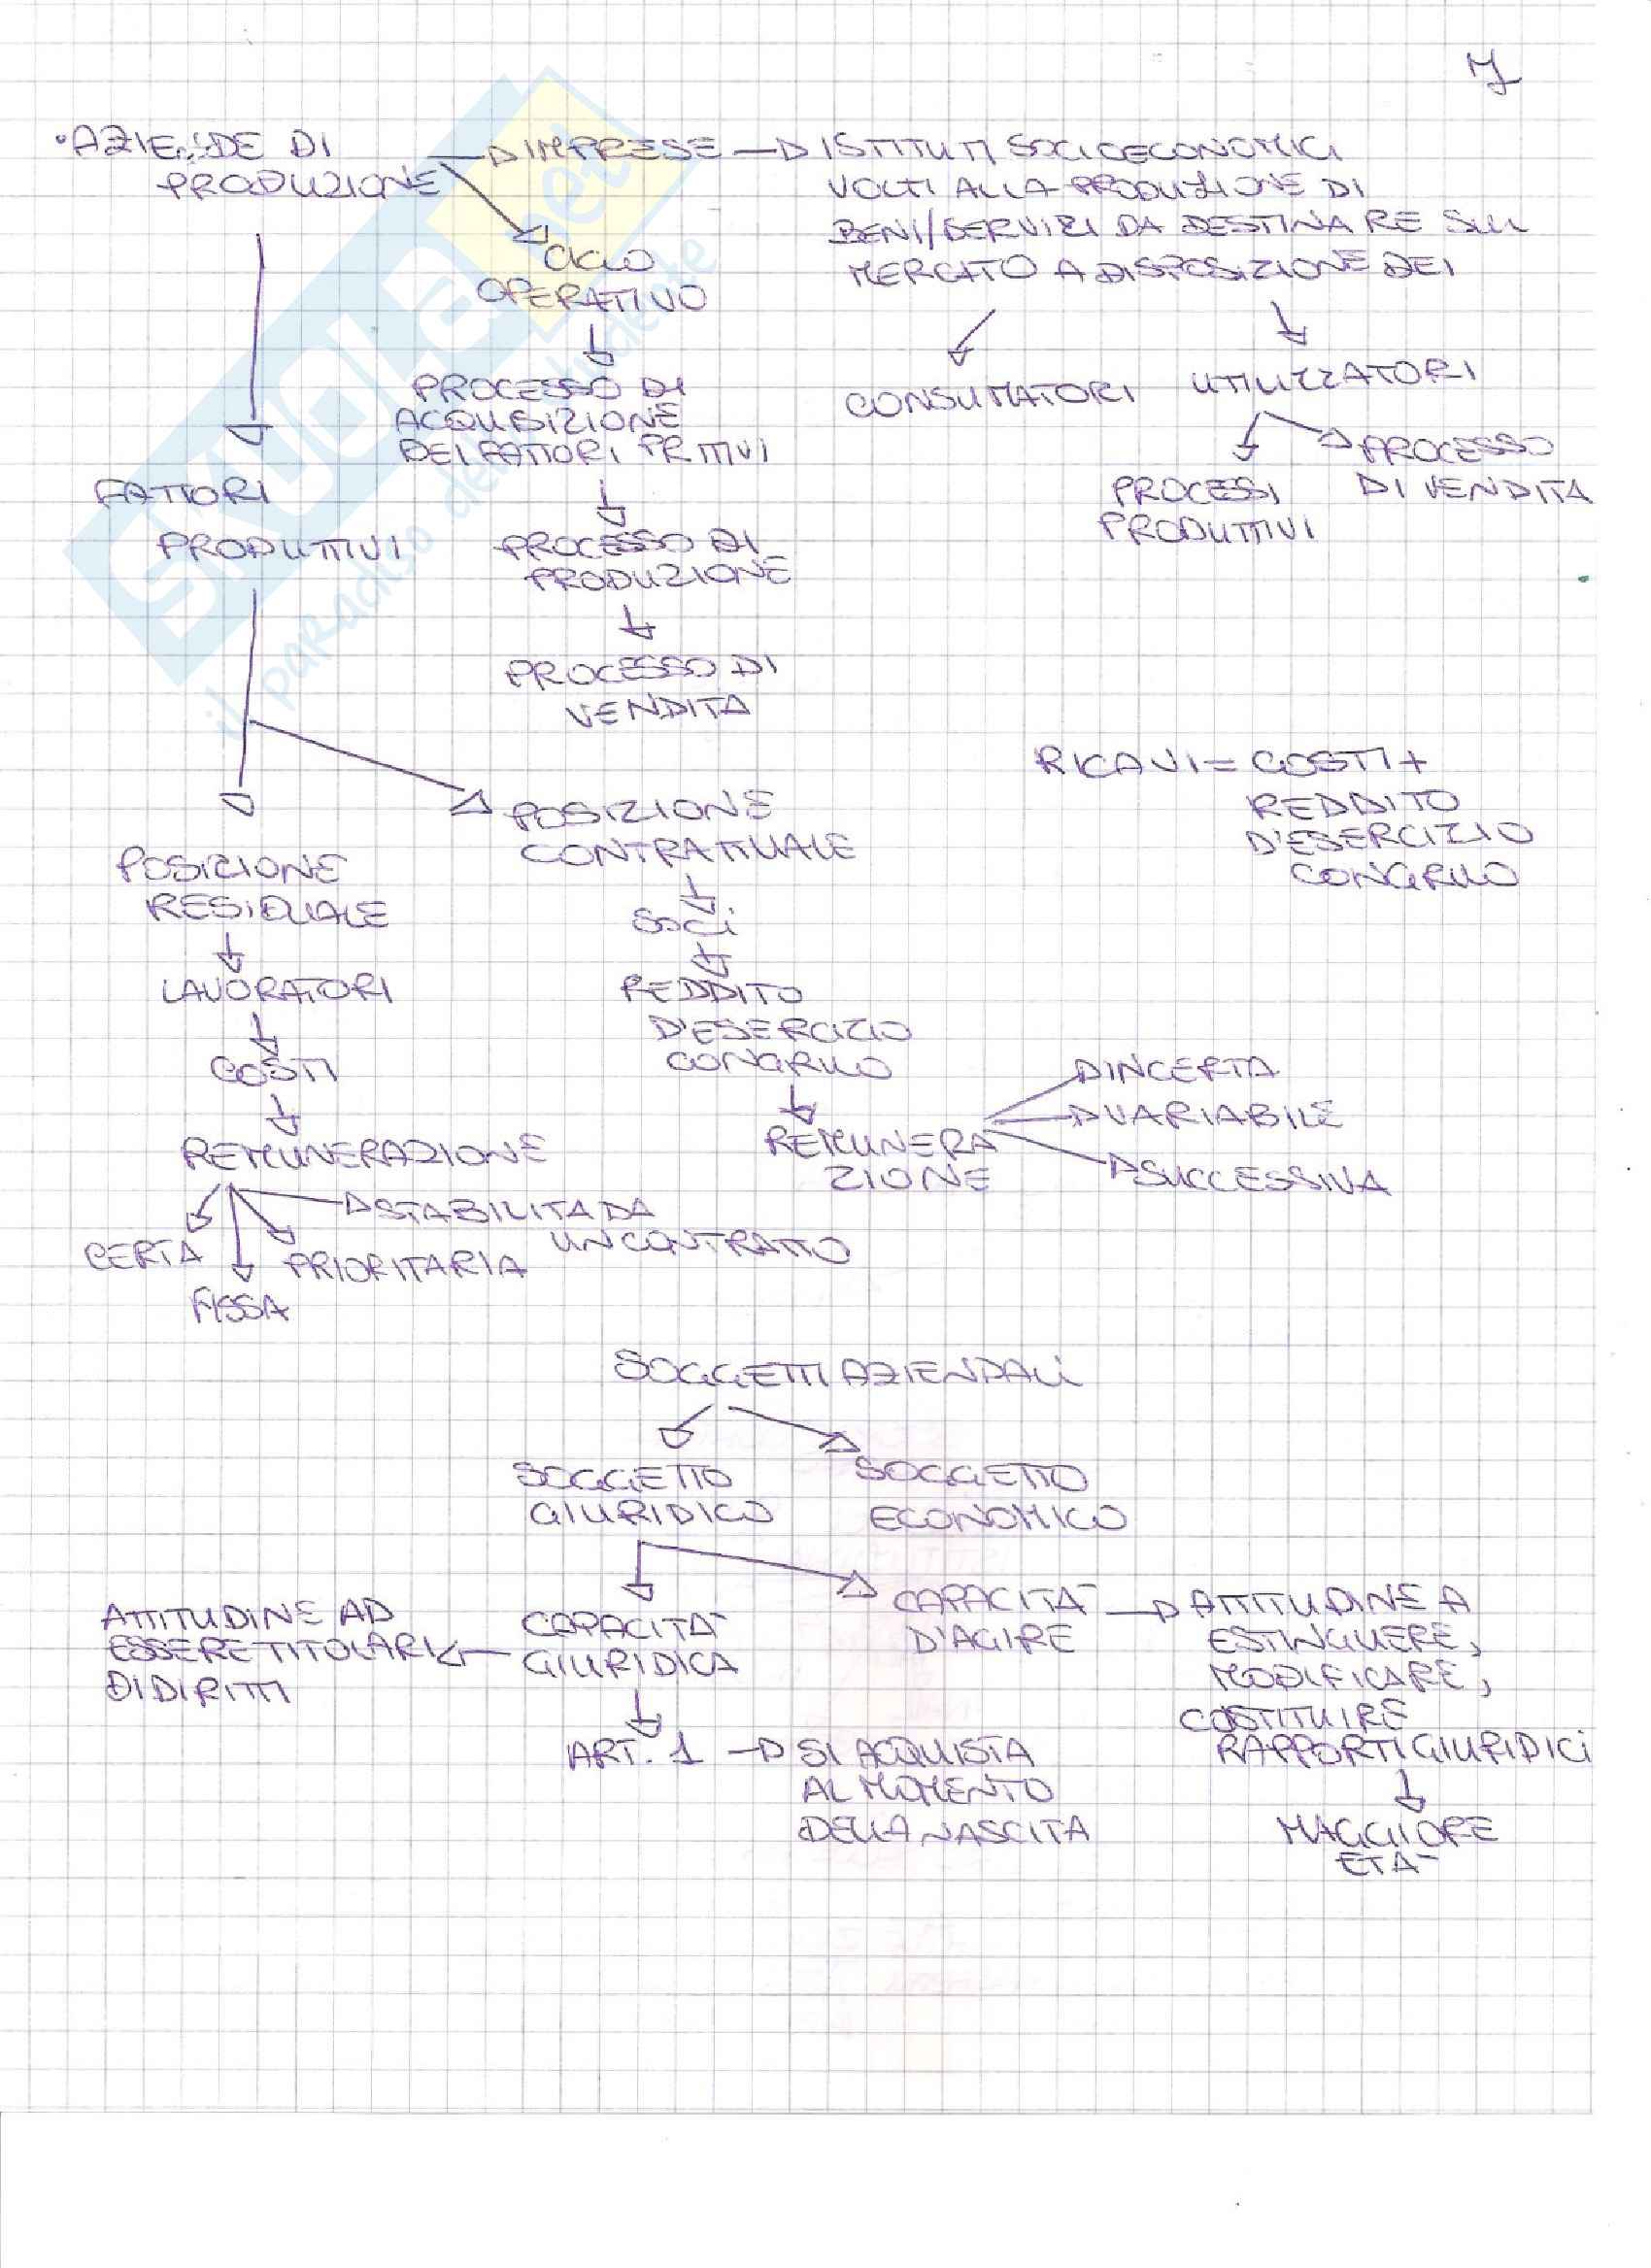 • AZIENDE DI
PRODUZIONE
IMPRESE
ISTITUTI SOCIOECONOMICI
VOLTI ALLA PRODUZIONE DI
BENI/SERVIZI DA DESTINARE SUL
MERCATO A DISPOSIZIONE DEI
CICLO
OPERATIVO
CONSUMATORI
UTILIZZATORI
PROCESSI
PRODUTTIVI
PROCESSO
DI VENDITA
PROCESSO DI
ACQUISIZIONE
DEI FATTORI PR.TTIVI
FATTORI
PRODUTTIVI
PROCESSO DI
PRODUZIONE
PROCESSO DI
VENDITA
RICAVI = COSTI +
REDDITO
D'ESERCIZIO
CONGRUO
POSIZIONE
RESIDUALE
LAVORATORI
COSTI
REMUNERAZIONE
CERTA
FISSA
PRIORITARIA
STABILITA DA
UN CONTRATTO
POSIZIONE
CONTRATTUALE
SOCI
REDDITO
D'ESERCIZIO
CONGRUO
REMUNERA
ZIONE
INCERTA
VARIABILE
SUCCESSIVA
SOGGETTI AZIENDALI
SOGGETTO
GIURIDICO
SOGGETTO
ECONOMICO
ATTITUDINE AD
ESSERE TITOLARI
DI DIRITTI
CAPACITA'
GIURIDICA
CAPACITA'
D'AGIRE
ATTITUDINE A
ESTINGUERE,
MODIFICARE,
COSTITUIRE
RAPPORTI GIURIDICI
ART. 1
SI ACQUISTA
AL MOMENTO
DELLA NASCITA
MAGGIORE
ETA'
SKUOLA.net
il paradiso dello studente